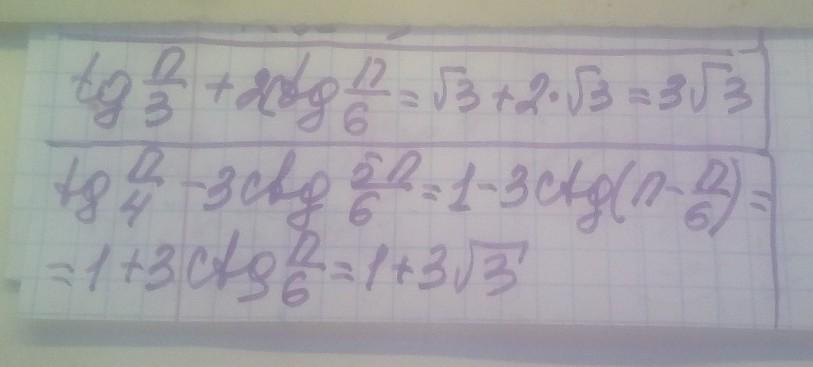 tg π/3 + 2ctg π/6 = √3 + 2·√3 = 3√3
tg π/4 - 3ctg 5π/6 = 1 - 3ctg(π - π/6) =
= 1 + 3ctg π/6 = 1 + 3√3